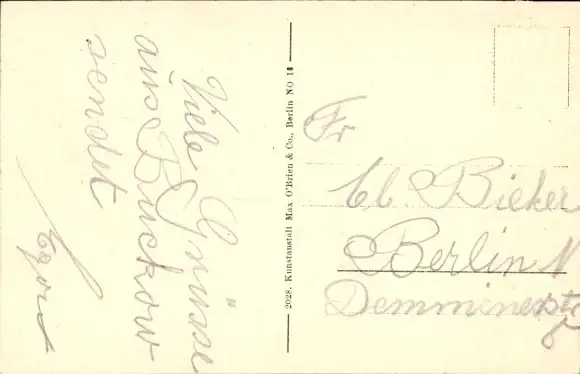 Viele Grüsse
aus Buckow
sendet
2028. Kunstanstalt Max O'Brien & Co., Berlin NO 18
Fr
Cl. Bieker
Berlin N
Demminerstr
6